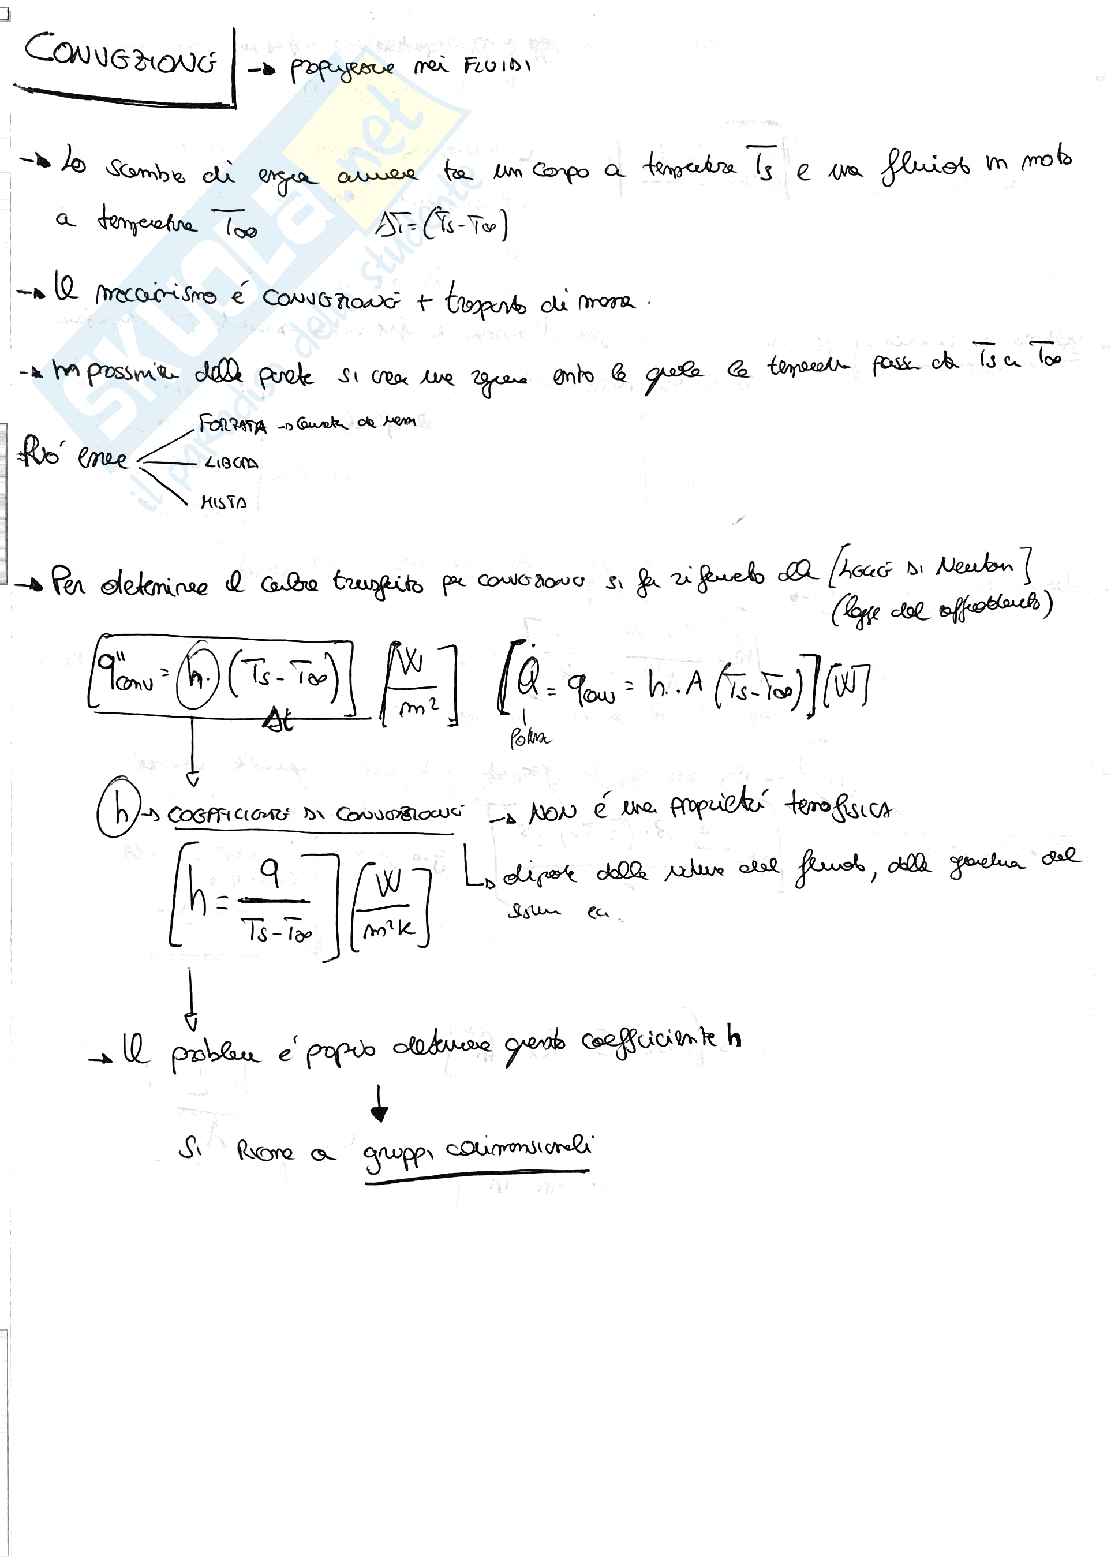 CONVEZIONE → propagazione nei FLUIDI
→ Lo scambio di energia avviene tra un corpo a temperatura Ts e un fluido in moto
a temperatura T∞ ΔT=(Ts-T∞)
→ Il meccanismo é CONVEZIONE + trasporto di massa.
→ In prossimità della parete si crea una regione entro la quale la temperatura passa da Ts a T∞
FORZATA →
Può essere LIBERA
MISTA
→ Per determinare il calore trasferito per convezione si fa riferimento alla [LEGGE DI Newton]
(legge del raffreddamento)
[q''conv = h · (Ts-T∞)] [W/m²] [Q̇ = qconv = h · A (Ts-T∞)] [W]
Δt
Potenza
h → COEFFICIENTE DI CONVEZIONE → NON é una proprietà termofisica
[h = q/(Ts-T∞)] [W/m²K] ↳ dipende dalla natura del fluido, dalla geometria del
sistema ecc.
→ Il problema é proprio determinare questo coefficiente h
Si ricorre a gruppi adimensionali
SKUOLA.net
il paradiso dello studente